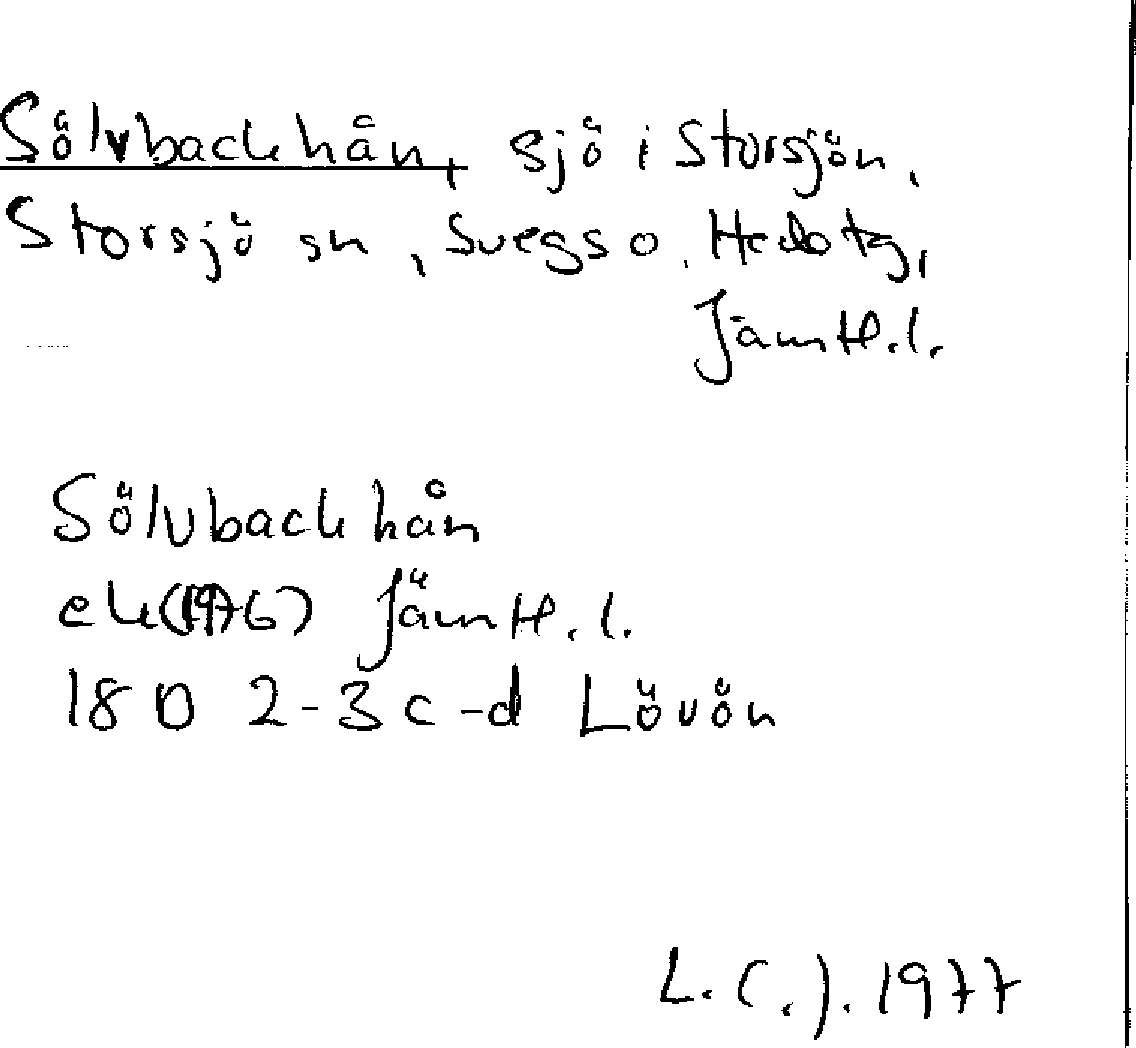 Sölvbackhån, sjö i Storsjön,
Storsjö sn, Svegs o. Hedo tg,
Jämtl. l.
Sölvbackhån
ek(1976) Jämtl. l.
18 D 2-3 c-d Lövön
L.C.J. 1977